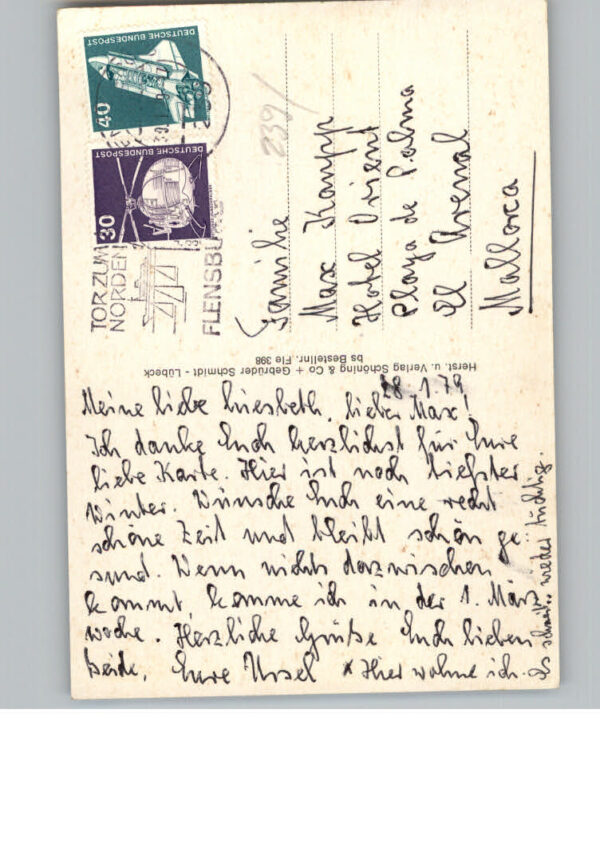 DEUTSCHE BUNDESPOST
40
DEUTSCHE BUNDESPOST
30
TOR ZUM
NORDEN
FLENSBU
239/
Familie
Max Kampp
Hotel Orient
Playa de Palma
El Arenal
Mallorca
Herst. u. Verlag Schöning & Co + Gebrüder Schmidt - Lübeck
bs Bestellnr. Fle 398
28.1.79
Meine liebe Liesbeth, lieber Max!
Ich danke Euch herzlichst für Eure
liebe Karte. Hier ist noch tiefster
Winter. Wünsche Euch eine recht
schöne Zeit und bleibt schön ge
sund. Wenn nichts dazwischen
kommt, komme ich in der 1. März
woche. Herzliche Grüße Euch lieben
beide, Eure Ursel x Hier wohne ich.
Es schneit wieder tüchtig.